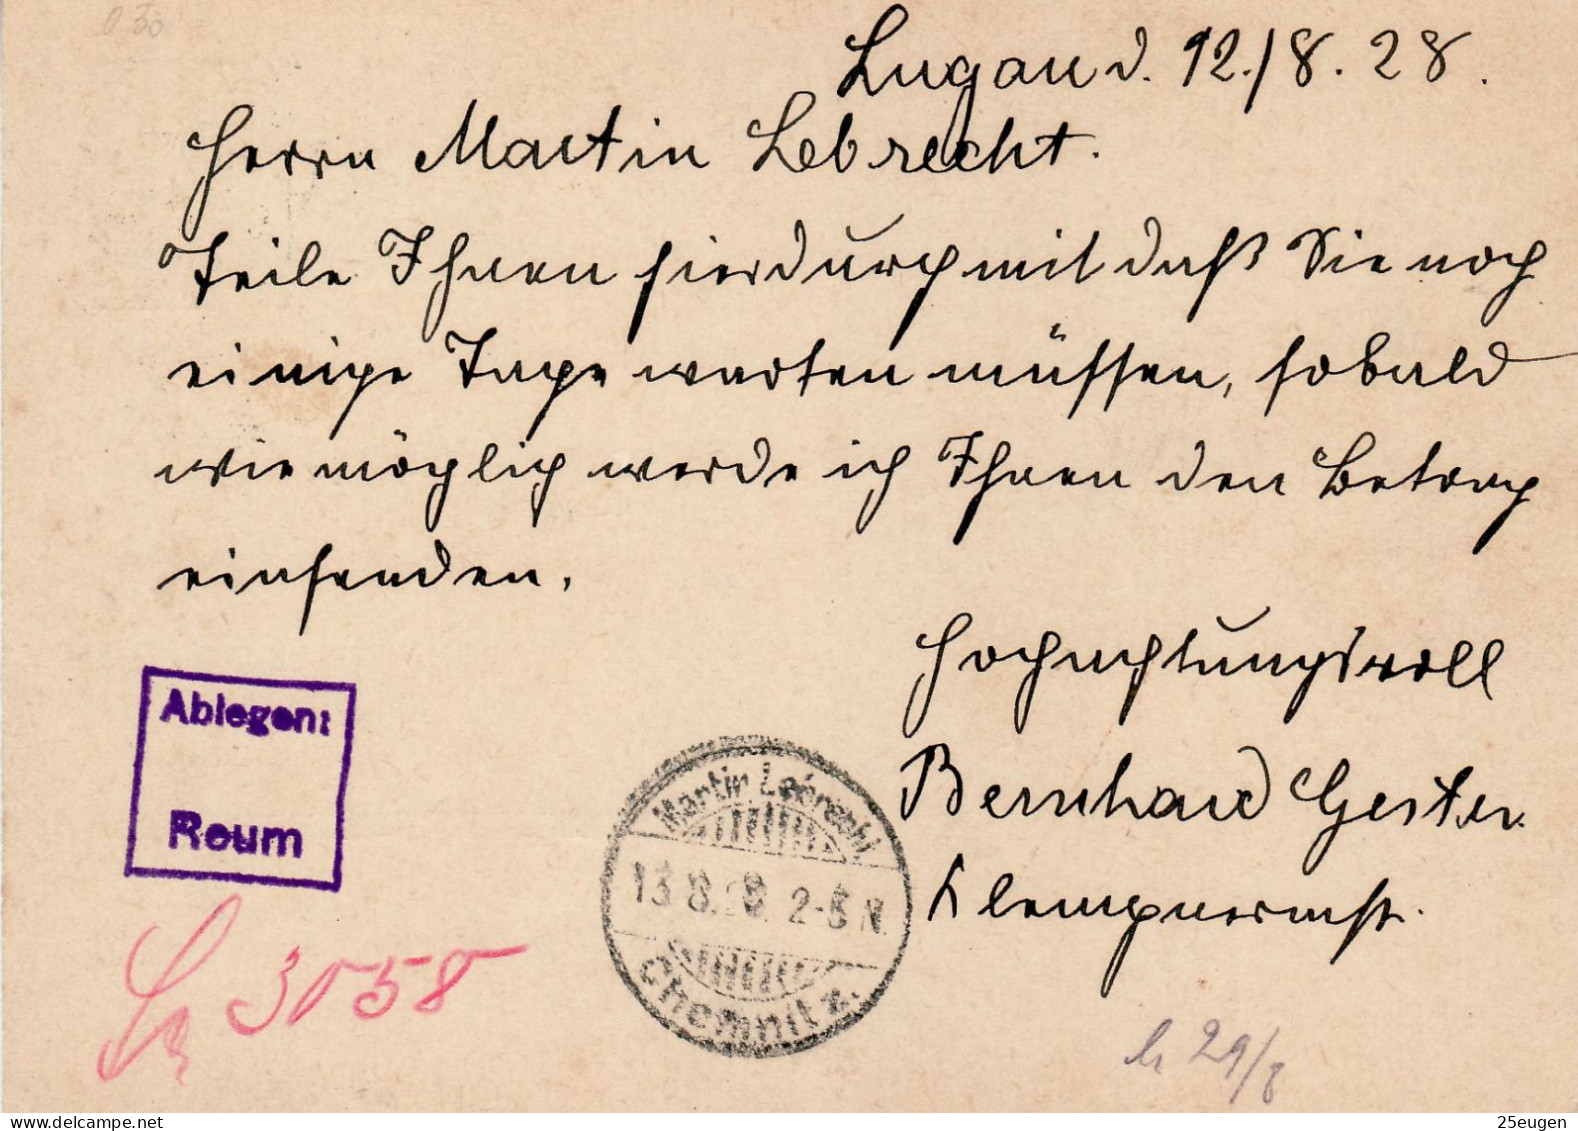 Lugau d. 12./8. 28.
Herrn Martin Lebrecht.
Teile Ihnen hierdurch mit daß Sie noch
einige Tage warten müssen, sobald
wie möglich werde ich Ihnen den Betrag
einsenden.
Hochachtungsvoll
Bernhard Gester
Klempnermstr.
Ablegen:
Reum
Martin Lebrecht
13.8.28. 2-5 N.
Chemnitz.
3058
29/8
25eugen